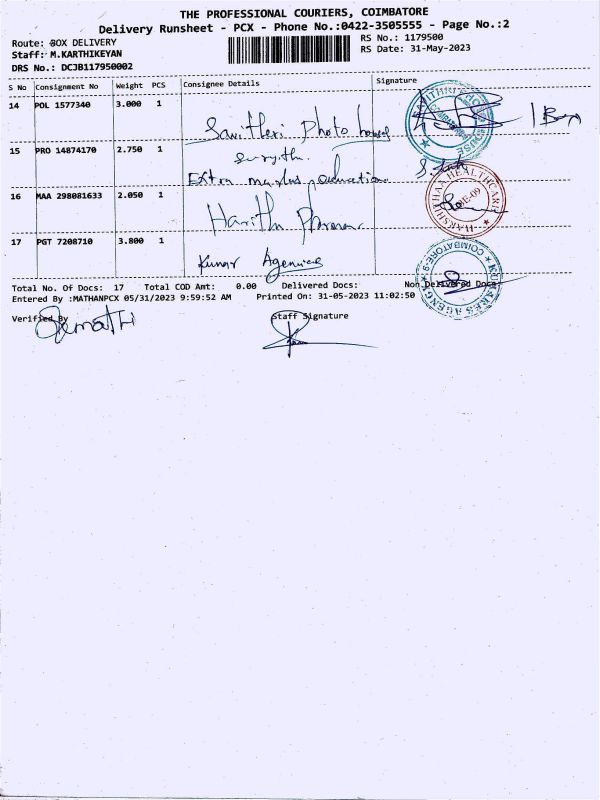 THE PROFESSIONAL COURIERS, COIMBATORE
Delivery Runsheet - PCX - Phone No.:0422-3505555 - Page No.:2
Route: BOX DELIVERY
RS No.: 1179500
Staff: M.KARTHIKEYAN
RS Date: 31-May-2023
DRS No.: DCJB117950002
S No Consignment No Weight PCS Consignee Details Signature
14 POL 1577340 3.000 1
Savitheri Photo house
SAVITHRI PHOTO HOUSE
15 PRO 14874170 2.750 1
Extra marks education
16 MAA 298081633 2.050 1
Harith Pharma
HARSHITHAA HEALTHCARE
17 PGT 7208710 3.800 1
Kumar Agencies
COIMBATORE-9
Total No. Of Docs: 17 Total COD Amt: 0.00 Delivered Docs: Non Delivered Docs:
Entered By :MATHANPCX 05/31/2023 9:59:52 AM Printed On: 31-05-2023 11:02:50
Verified By
Staff Signature